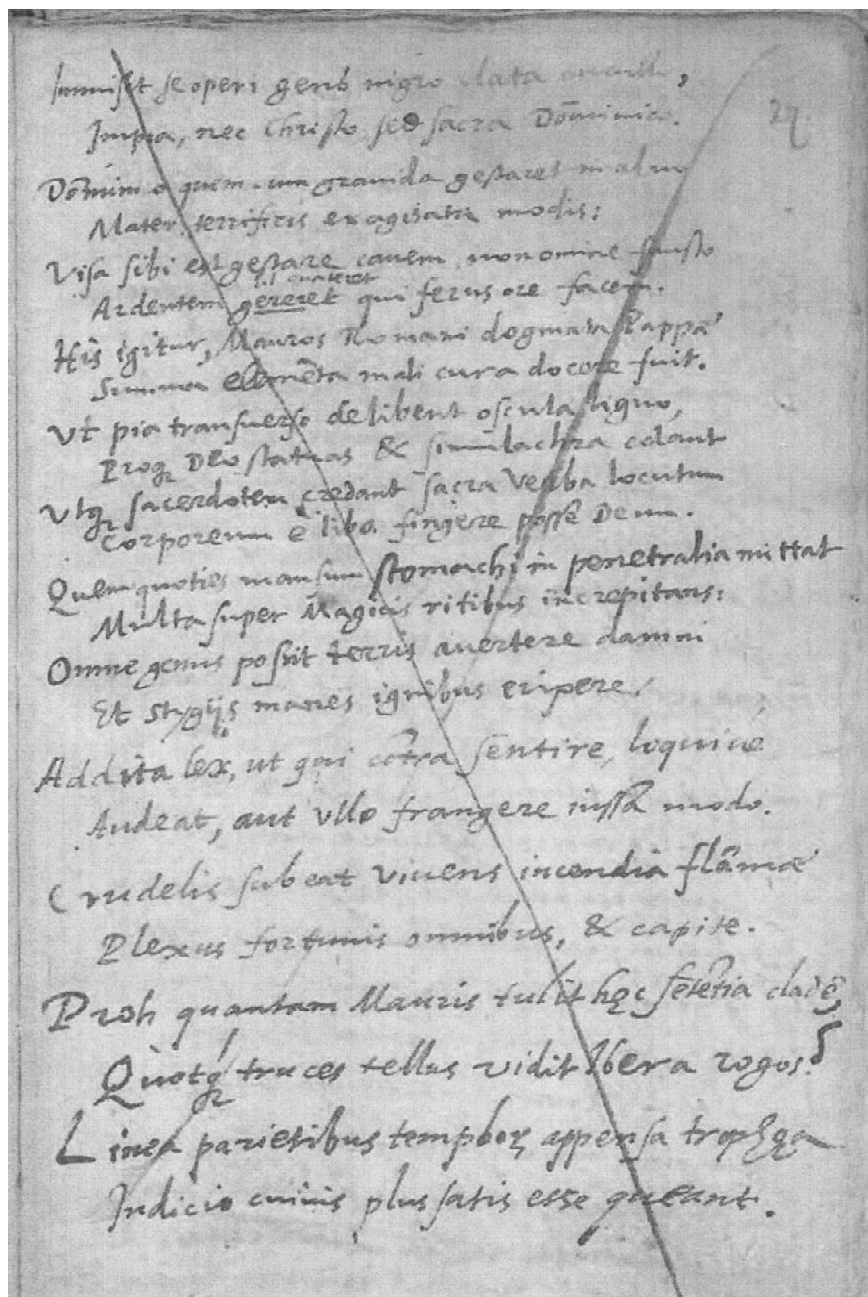 Immisit se operi genus nigro elata cucullo,
27.
Impia, nec Christo sed sacra Dominico.
Dominico quem cum gravida gestaret in alvo
Mater, terrificis exagitata modis:
Visa sibi est gestare canem, non omine fausto
quateret
Ardentem gereret qui ferus ore facem.
His igitur, Mauros Romani dogmata Pappae
Summa elemēta mali cura docere fuit.
Vt pia transuerso delibent oscula ligno,
Proq; Deo statuas & simulachra colant
Vtq; sacerdotem credant sacra verba locutum
Corporeum è libo fingere posse Deum.
Quem quoties mansum stomachi in penetralia mittat
Multa super Magicis ritibus increpitans:
Omne genus possit terris avertere damni
Et stygijs manes ignibus eripere.
Addita lex, ut qui cōtra sentire, loquiue
Audeat, aut vllo frangere iussa modo.
Crudelis subeat viuens incendia flāmae
Plexus fortunis omnibus, & capite.
Proh quantam Mauris tulit hęc sētētia cladē,
Quotq; truces tellus vidit Ibera rogos!
Linea parietibus templorum appensa trophęa
Indicio cuiuis plus satis esse queant.